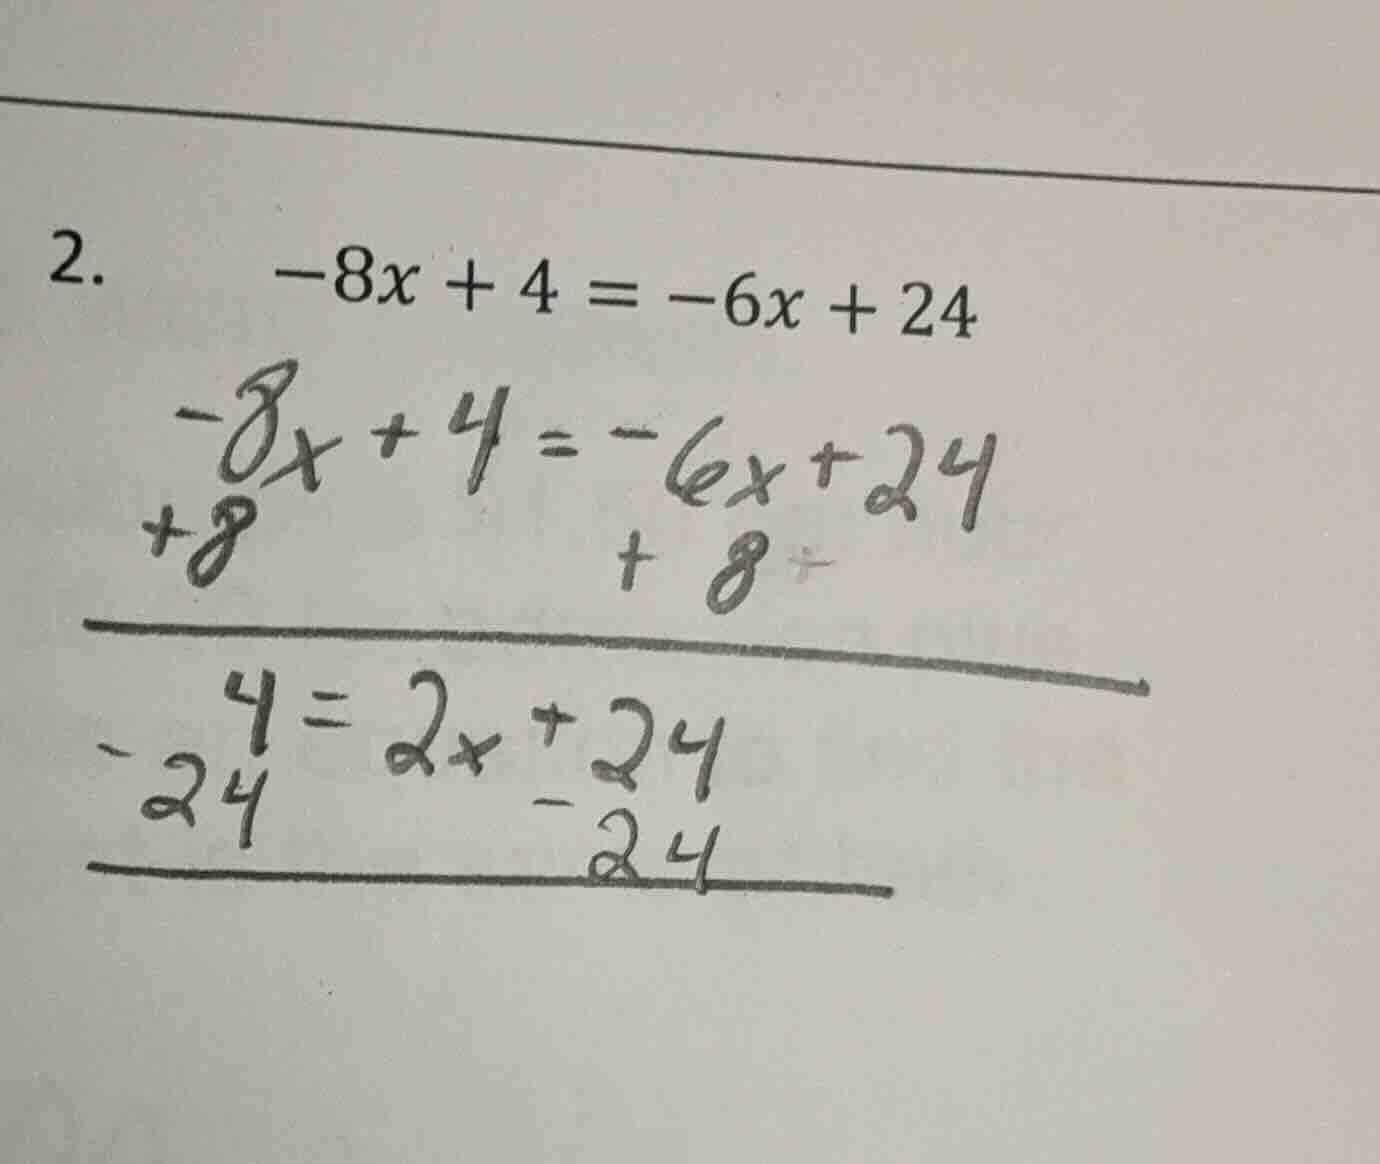 2. −8x + 4 = −6x + 24
-8x + 4 = -6x + 24
+8 + 8 +
4 = 2x + 24
- 24 - 24